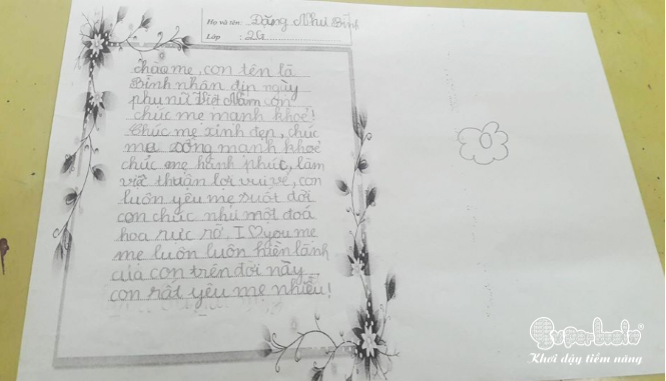 Họ và tên: Đặng Như Bình
Lớp : 2G
Chào mẹ, con tên là
Bình nhân dịp ngày
phụ nữ Việt Nam con
chúc mẹ mạnh khoẻ!
Chúc mẹ xinh đẹp, chúc
mẹ sống mạnh khoẻ
chúc mẹ hành phúc, làm
việ thuận lợi vui vẻ, con
luôn yêu mẹ suốt đời
con chúc như một đoá
hoa rực rỡ, I ♡ you mẹ
mẹ luôn luôn hiền lành
của con trên đời này
con rất yêu mẹ nhiều!
Superbrain
Khơi dậy tiềm năng